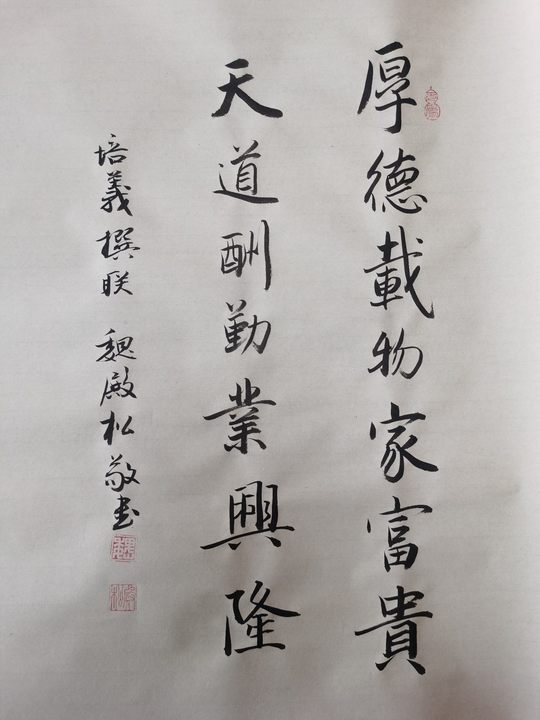 厚德載物家富貴
天道酬勤業興隆
培義撰联 魏殿松敬书